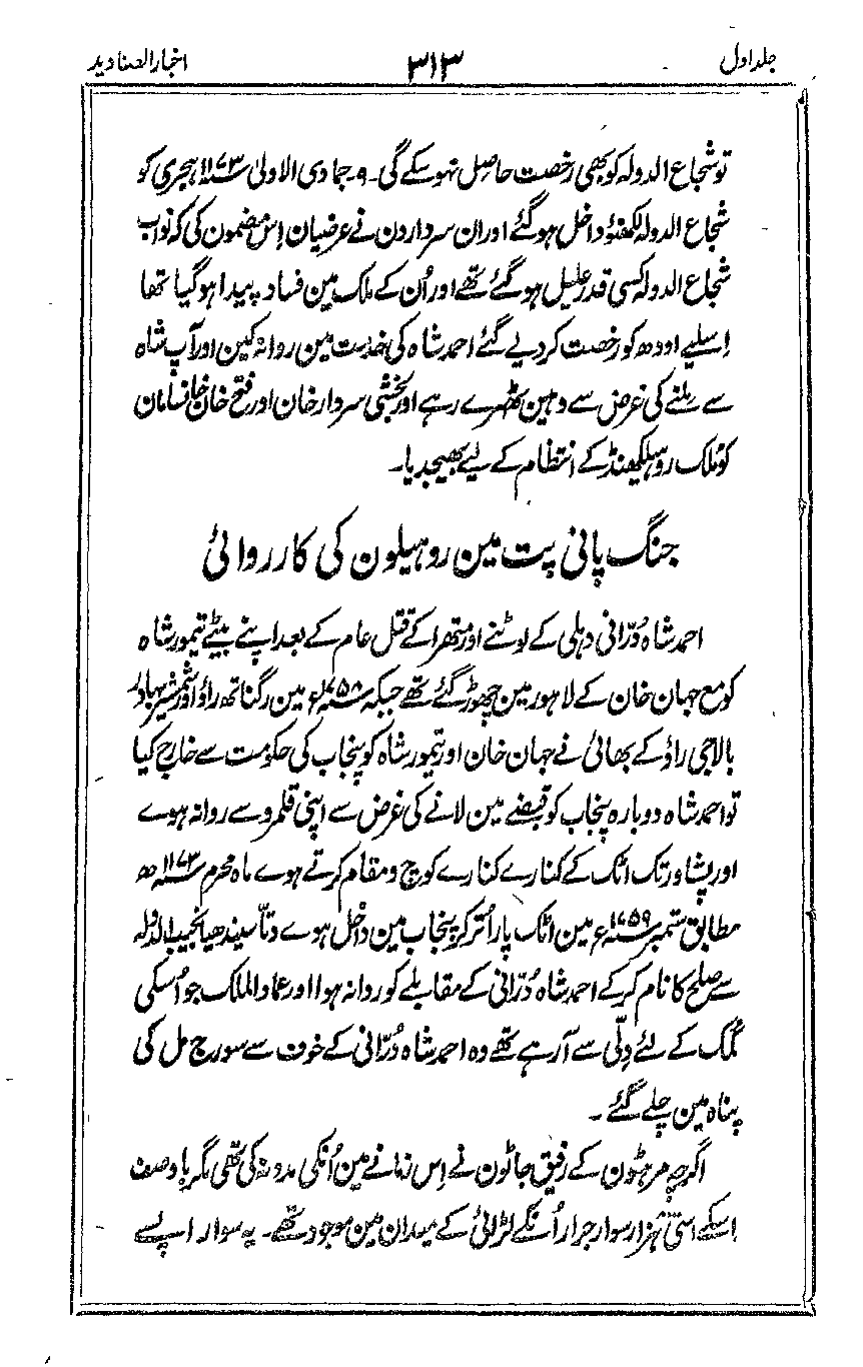 جلد اول
۳۱۳
اخبار الصنادید
تو شجاع الدولہ کو بھی رخصت حاصل نہو سکے گی۔ ۹۔ جمادی الاولیٰ ۱۱۷۳ ہجری کو
شجاع الدولہ لکھنؤ داخل ہو گئے اور ان سردارون نے عرضیان اس مضمون کی کہ نواب
شجاع الدولہ کسی قدر علیل ہو گئے تھے اور اُن کے ملک مین فساد پیدا ہو گیا تھا
اسلیے اودھ کو رخصت کر دیے گئے احمد شاہ کی خدمت مین روانہ کین اور آپ شاہ
سے ملنے کی غرض سے وہین ٹھہرے رہے اور بخشی سردار خان اور فتح خان خانسامان
کو ملک روہیلکھنڈ کے انتظام کے لیے بھیجدیا۔
جنگ پانی پت مین روہیلون کی کارروائی
احمد شاہ دُرّانی دہلی کے لوٹنے اور متھرا کے قتل عام کے بعد اپنے بیٹے تیمور شاہ
کو مع جہان خان کے لاہور مین چھوڑ گئے تھے جبکہ ۱۷۵۸ء مین رگناتھ راؤ اور شمشیر بہادر
بالاجی راؤ کے بھائی نے جہان خان اور تیمور شاہ کو پنجاب کی حکومت سے خارج کیا
تو احمد شاہ دوبارہ پنجاب کو قبضے مین لانے کی غرض سے اپنی قلمرو سے روانہ ہوے
اور پشاور تک اٹک کے کنارے کنارے کوچ و مقام کرتے ہوے ماہ محرم ۱۱۷۳ھ
مطابق ستمبر ۱۷۵۹ء مین اٹک پار اُتر کر پنجاب مین داخل ہوے دتّا سیندھیا نجیب الدولہ
سے صلح کا نام کر کے احمد شاہ دُرّانی کے مقابلے کو روانہ ہوا اور عماد الملک جو اُسکی
کمک کے لئے دِلّی سے آ رہے تھے وہ احمد شاہ دُرّانی کے خوف سے سورج مل کی
پناہ مین چلے گئے۔
اگرچہ مرہٹون کے رفیق جاٹون نے اِس زمانے مین اُنکی مدد نہ کی تھی مگر باوصف
اِسکے اسّی ہزار سوار جرار اُنکے لڑائی کے میدان مین موجود تھے۔ یہ سوار ایسے